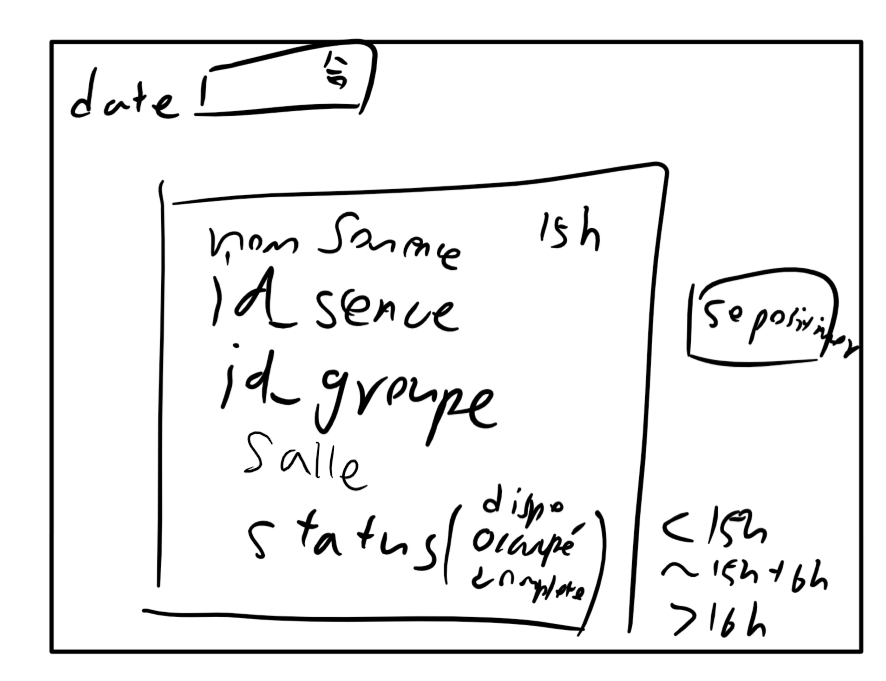 date
nom Sanence 15h
id_sence
id_groupe
Salle
status (dispo
ocupé
complete)
se positionner
< 15h
~ 15h + 6h
> 16h